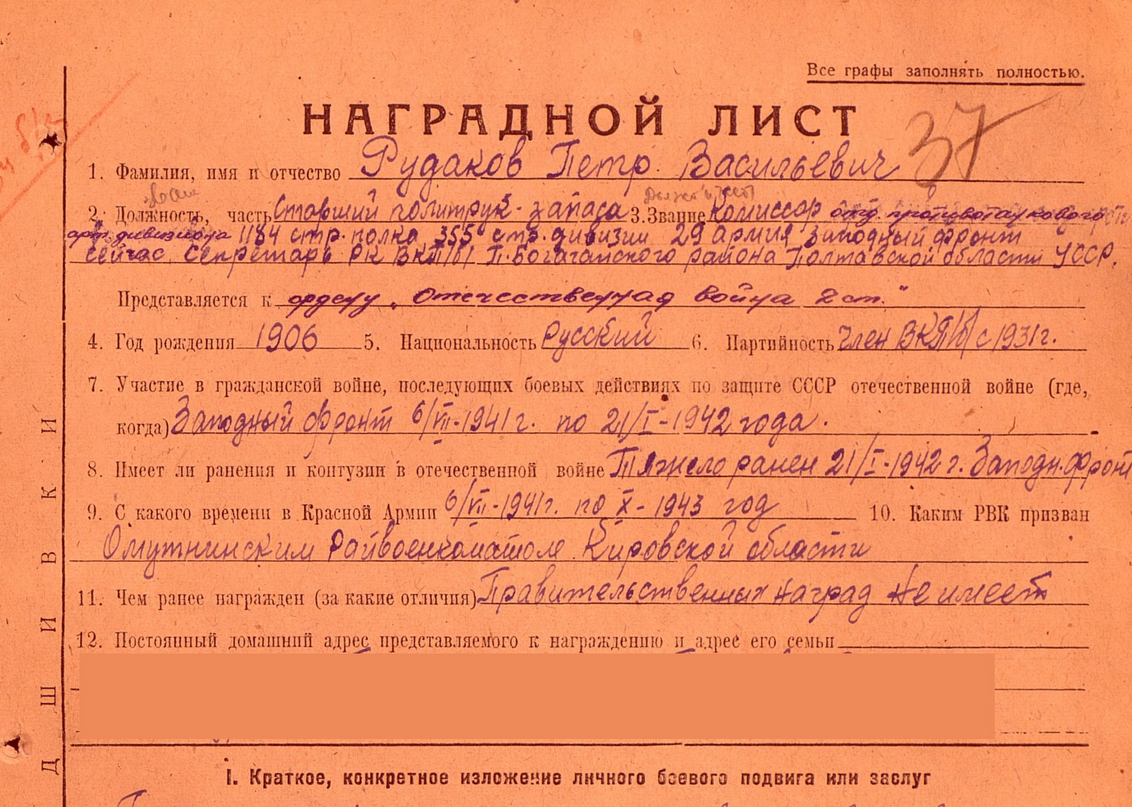 Все графы заполнять полностью.
НАГРАДНОЙ ЛИСТ
37
1. Фамилия, имя и отчество Рудаков Петр Васильевич
2. Должность, часть Ставший политрук - запаса 3. Звание Комиссар отд. противотанкового
арт. дивизиона 1184 стр. полка 355 стр. дивизии 29 армия Западный фронт
сейчас Секретарь РК ВКП/б/ П. Богачанского района Полтавской области УССР.
Представляется к ордену „Отечественная война 2 ст."
4. Год рождения 1906 5. Национальность Русский 6. Партийность Член ВКП/б/ с 1931 г.
7. Участие в гражданской войне, последующих боевых действиях по защите СССР отечественной войне (где,
когда) Западный фронт 6/VII-1941 г. по 21/I-1942 года.
8. Имеет ли ранения и контузии в отечественной войне Тяжело ранен 21/I-1942 г. Западн. фронт
9. С какого времени в Красной Армии 6/VII-1941 г. по X-1943 год 10. Каким РВК призван
Омутнинским Райвоенкоматом Кировской области
11. Чем ранее награжден (за какие отличия) Правительственных наград не имеет
12. Постоянный домашний адрес представляемого к награждению и адрес его семьи
I. Краткое, конкретное изложение личного боевого подвига или заслуг
ДШИВКИ